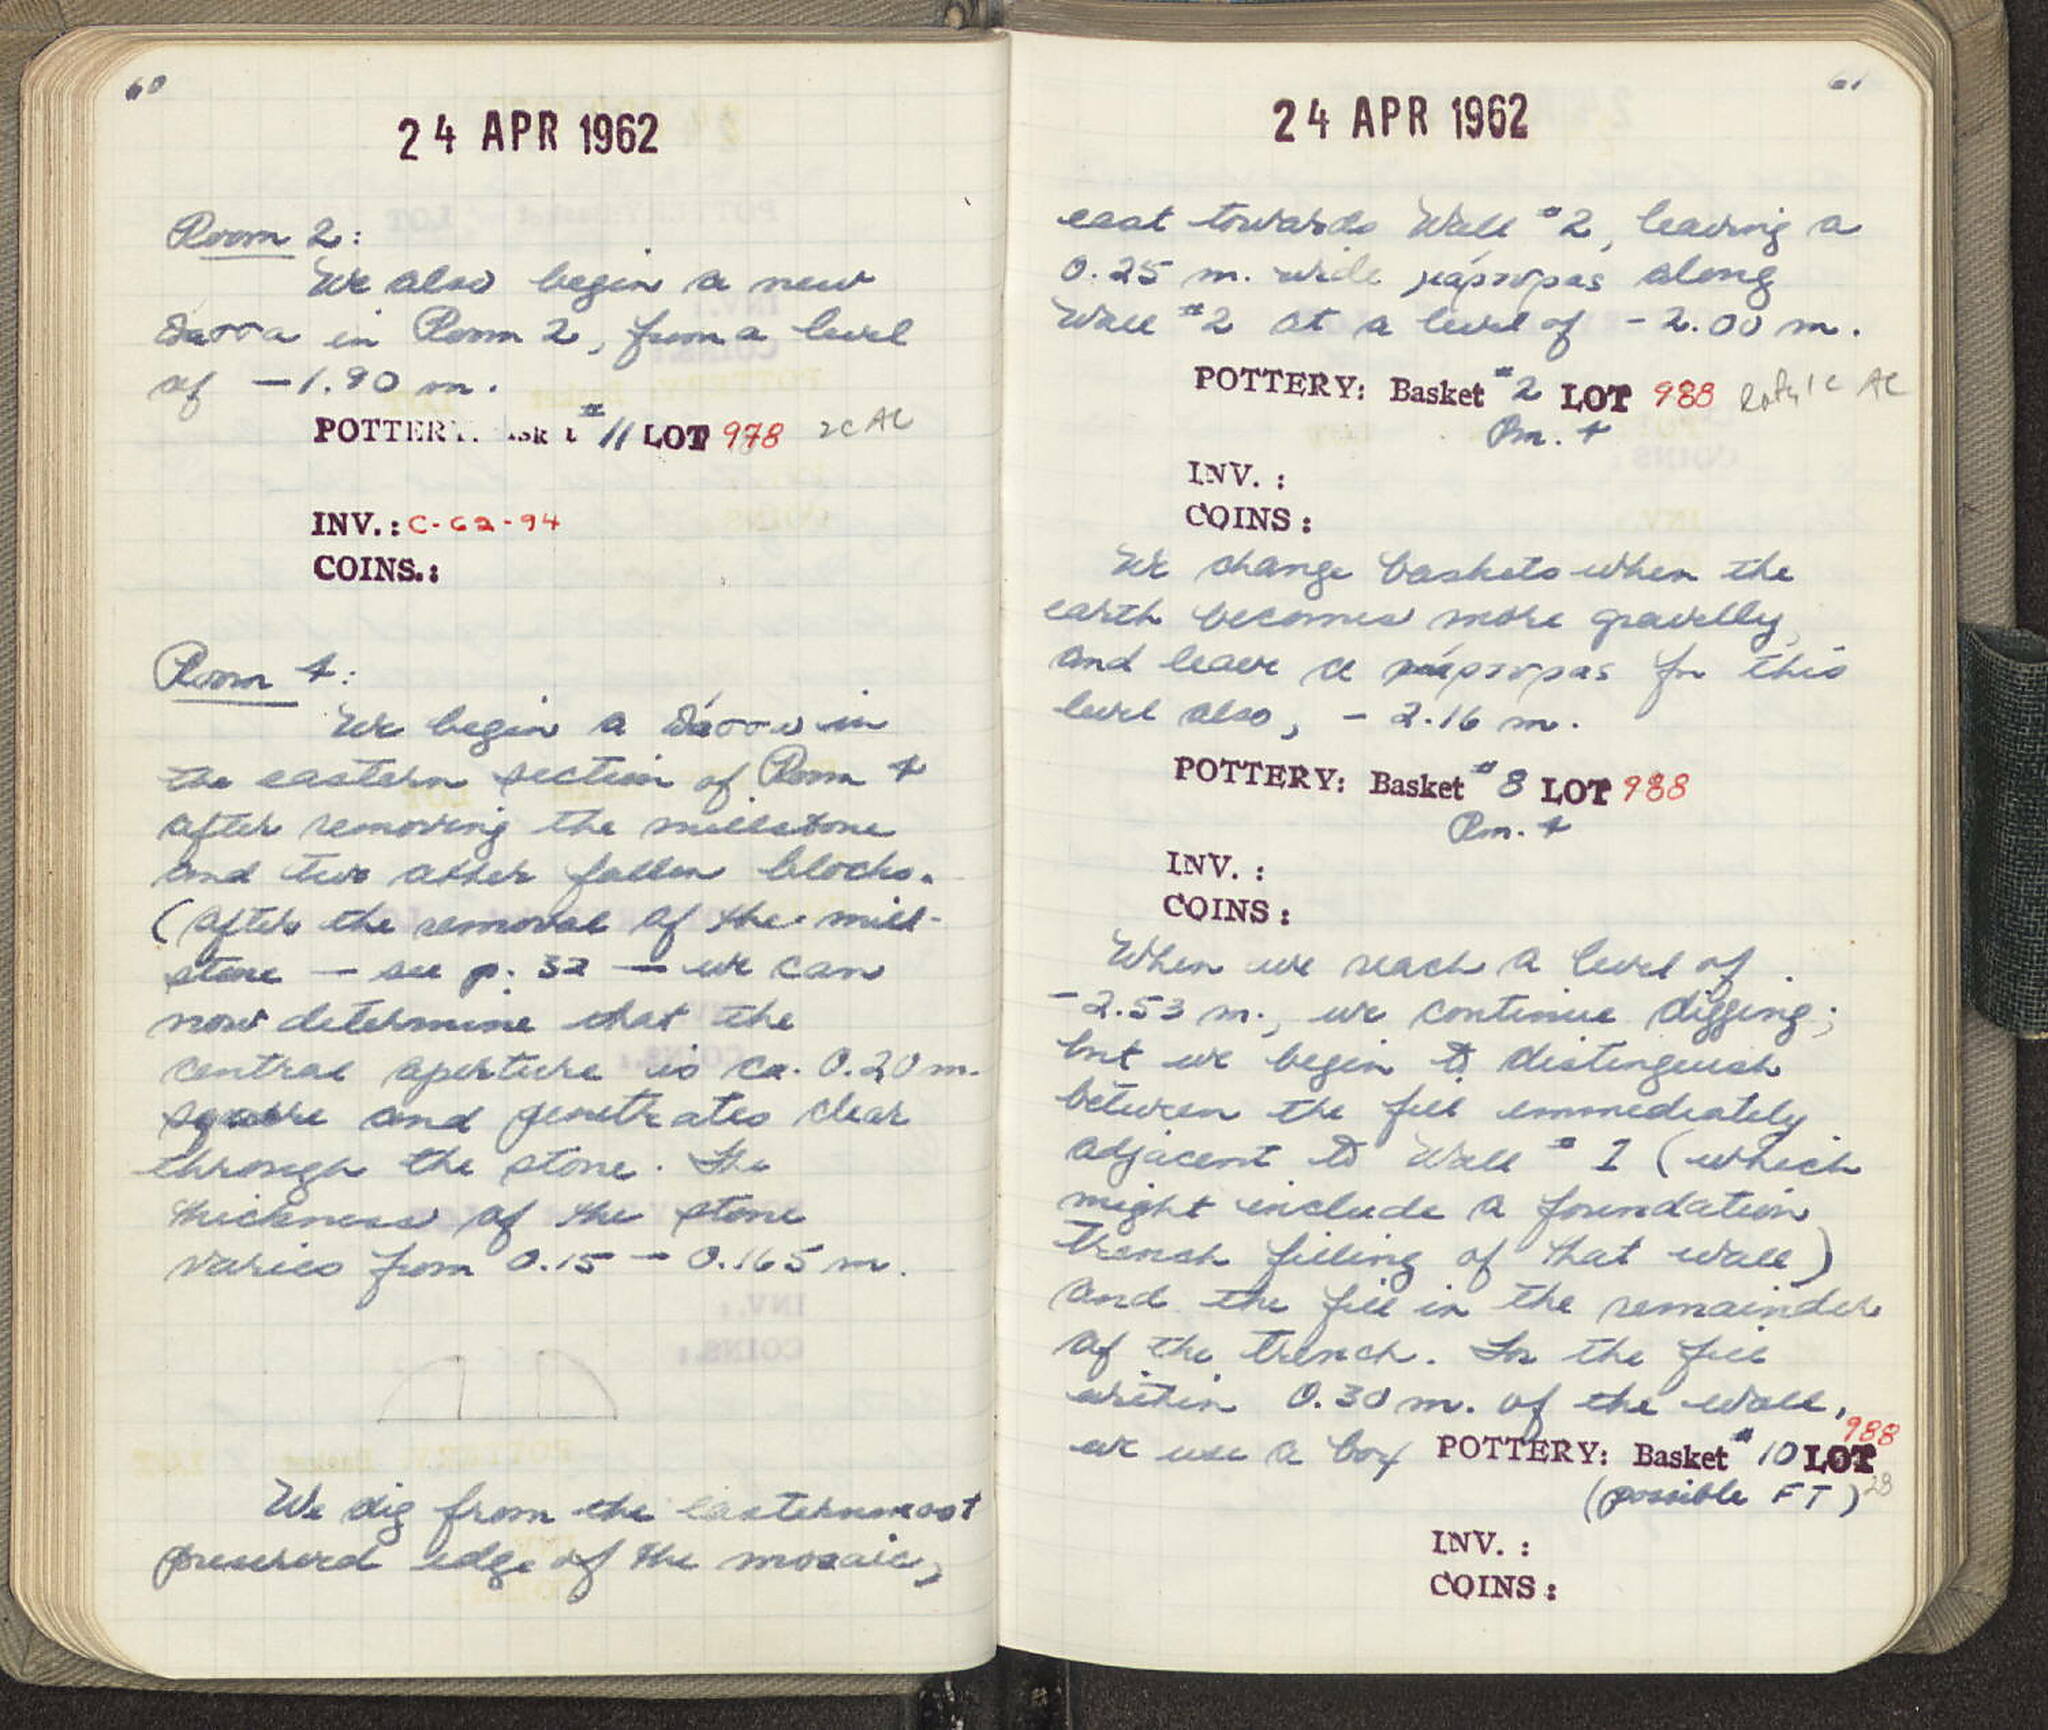 60
24 APR 1962
Room 2:
We also begin a new
πάσσα in Room 2, from a level
of - 1.90 m.
POTTERY: Basket #11 LOT 978 2C AC
INV.: C-62-94
COINS.:
Room 4:
We begin a πάσσα in
the eastern section of Room 4
after removing the millstone
and two other fallen blocks.
(After the removal of the mill-
stone — see p. 32 — we can
now determine that the
central aperture is ca. 0.20 m.
square and penetrates clear
through the stone. The
thickness of the stone
varies from 0.15 - 0.165 m.
We dig from the easternmost
preserved edge of the mosaic,
61
24 APR 1962
east towards Wall #2, leaving a
0.25 m. wide μάρτυρας along
Wall #2 at a level of - 2.00 m.
POTTERY: Basket #2 LOT 988 1C AC
Rm. 4
INV. :
COINS :
We change baskets when the
earth becomes more gravelly,
and leave a μάρτυρας for this
level also, - 2.16 m.
POTTERY: Basket #8 LOT 988
Rm. 4
INV. :
COINS :
When we reach a level of
- 2.53 m., we continue digging;
but we begin to distinguish
between the fill immediately
adjacent to Wall #1 (which
might include a foundation
trench filling of that wall)
and the fill in the remainder
of the trench. For the fill
within 0.30 m. of the wall,
we use a box POTTERY: Basket #10 LOT 988
(possible FT)
INV. :
COINS :